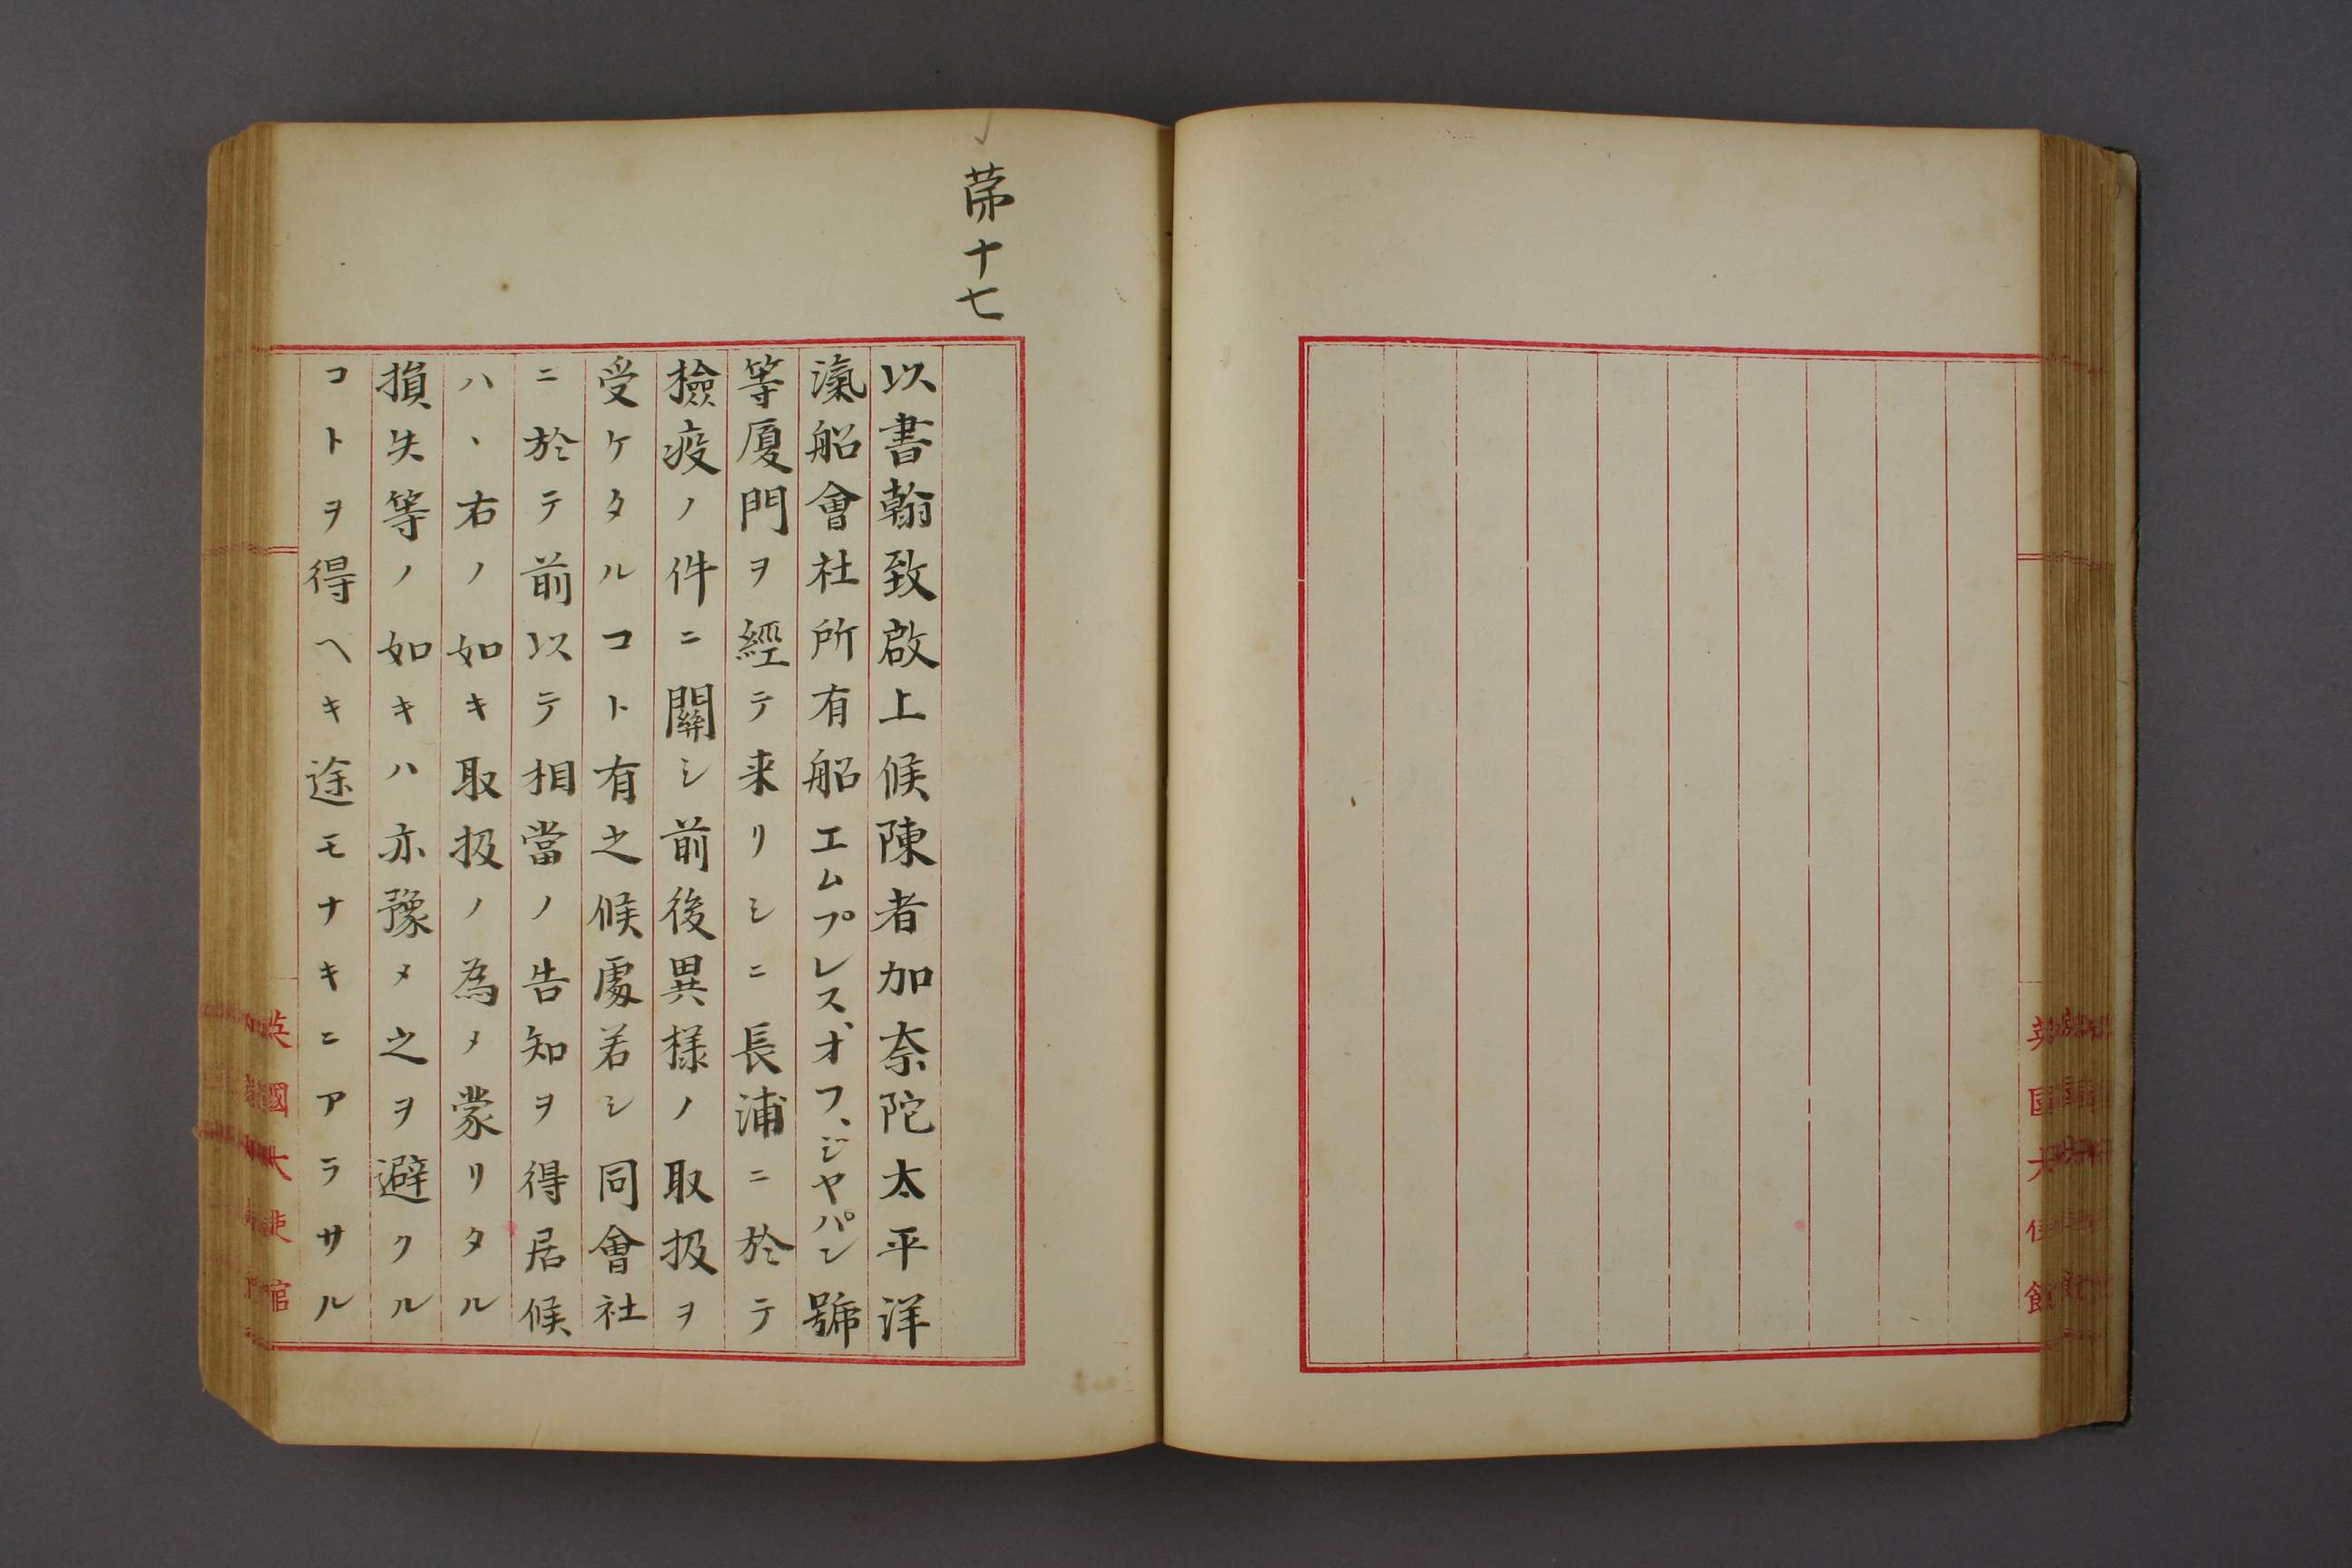 英國大使館
第十七
以書翰致啟上候陳者加奈陀太平洋
滊船會社所有船エムプレス、オフ、ジヤパン號
等厦門ヲ經テ来リシニ長浦ニ於テ
撿疫ノ件ニ關シ前後異様ノ取扱ヲ
受ケタルコト有之候處若シ同會社
ニ於テ前以テ相當ノ告知ヲ得居候
ハヽ右ノ如キ取扱ノ為メ蒙リタル
損失等ノ如キハ亦豫メ之ヲ避クル
コトヲ得ヘキ途モナキニアラサル
英國大使官